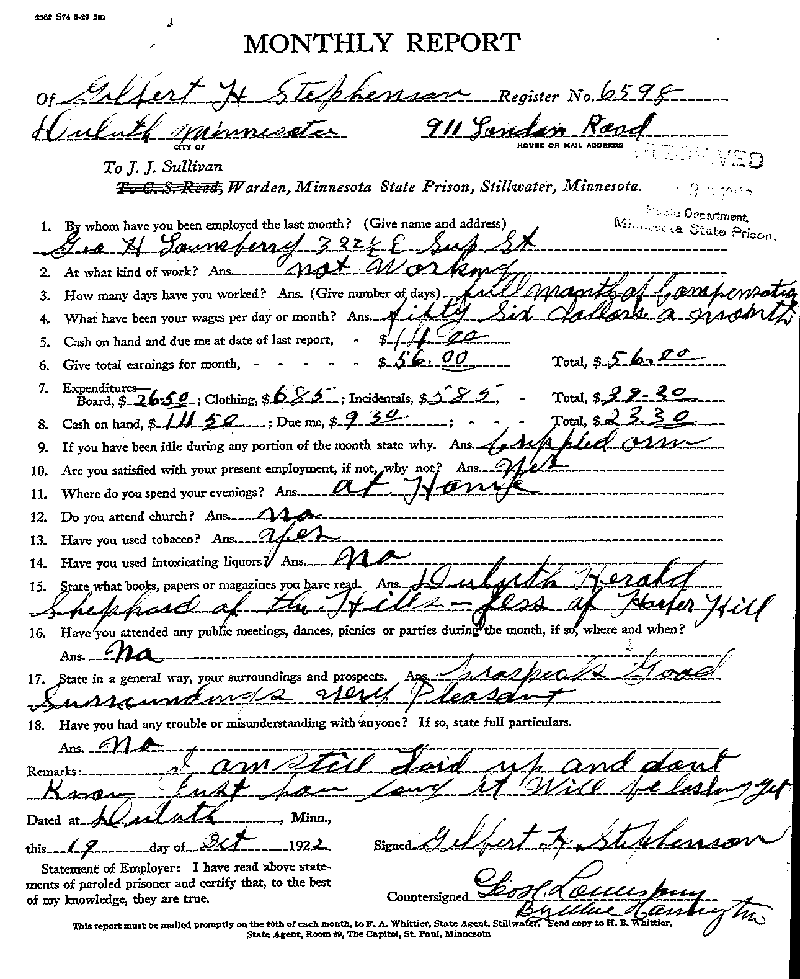 MONTHLY REPORT
Of Gilbert H Stephenson Register No. 6598
Duluth Minnesota 911 London Road
CITY OF HOUSE OR MAIL ADDRESS
To J. J. Sullivan
RECEIVED
To C. S. Reed, Warden, Minnesota State Prison, Stillwater, Minnesota.
Department,
Minnesota State Prison.
1. By whom have you been employed the last month? (Give name and address)
Geo H Lounsberry E Sup St
2. At what kind of work? Ans. not Working
3. How many days have you worked? Ans. (Give number of days) full month of Compensation
4. What have been your wages per day or month? Ans. fifty Six dollars a month
5. Cash on hand and due me at date of last report, - $ 14 00
6. Give total earnings for month, - - - - - $ 56.00 Total, $ 56.00
7. Expenditures—
Board, $ 26.50 ; Clothing, $ 6 85 ; Incidentals, $ 5 85 , - Total, $ 39.20
8. Cash on hand, $ 14 50 ; Due me, $ 9 30 ; - - - Total, $ 23 30
9. If you have been idle during any portion of the month state why. Ans. Crippled arm
10. Are you satisfied with your present employment, if not, why not? Ans. yes
11. Where do you spend your evenings? Ans. at Home
12. Do you attend church? Ans. no
13. Have you used tobacco? Ans. yes
14. Have you used intoxicating liquors? Ans. No
15. State what books, papers or magazines you have read. Ans. Duluth Herald
Shephard of the Hills — Jess of Harper Hill
16. Have you attended any public meetings, dances, picnics or parties during the month, if so, where and when?
Ans. No
17. State in a general way, your surroundings and prospects. Ans. Prospects Good
Surroundings very Pleasant
18. Have you had any trouble or misunderstanding with anyone? If so, state full particulars.
Ans. No
Remarks: I am still Laid up and dont
Know Just how long it Will be
Dated at Duluth , Minn.,
this 19 day of Oct 1922 Signed Gilbert H Stephenson
Statement of Employer: I have read above state-
ments of paroled prisoner and certify that, to the best
of my knowledge, they are true.
Countersigned Geo H Lounsberry
By
This report must be mailed promptly on the 20th of each month, to F. A. Whittier, State Agent, Stillwater, Send copy to H. B. Whittier,
State Agent, Room 49, The Capitol, St. Paul, Minnesota